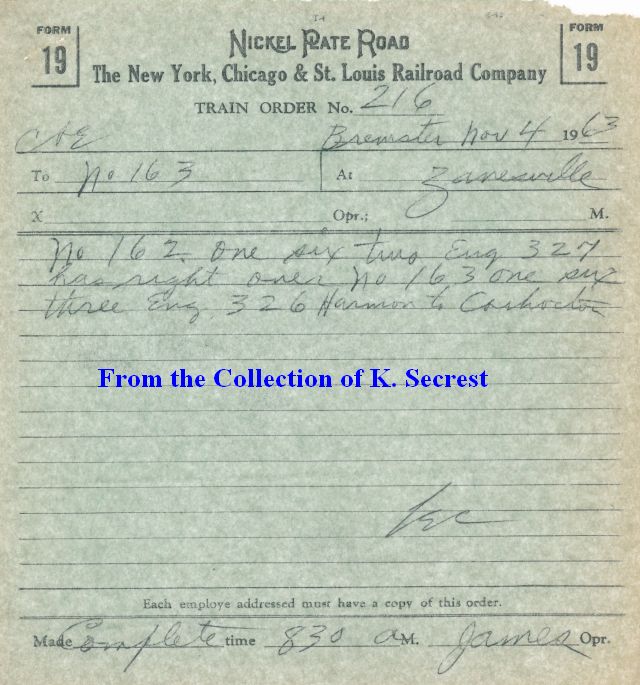 FORM 19
NICKEL PLATE ROAD
FORM 19
The New York, Chicago & St. Louis Railroad Company
TRAIN ORDER No. 216
Brewster Nov 4 1963
To No 163 At Zanesville
X Opr.; M.
No 162 one six two Eng 327
has right over No 163 one six
three Eng. 326 Harmon to Coshocton
From the Collection of K. Secrest
Each employe addressed must have a copy of this order.
Made Complete time 830 a M. James Opr.